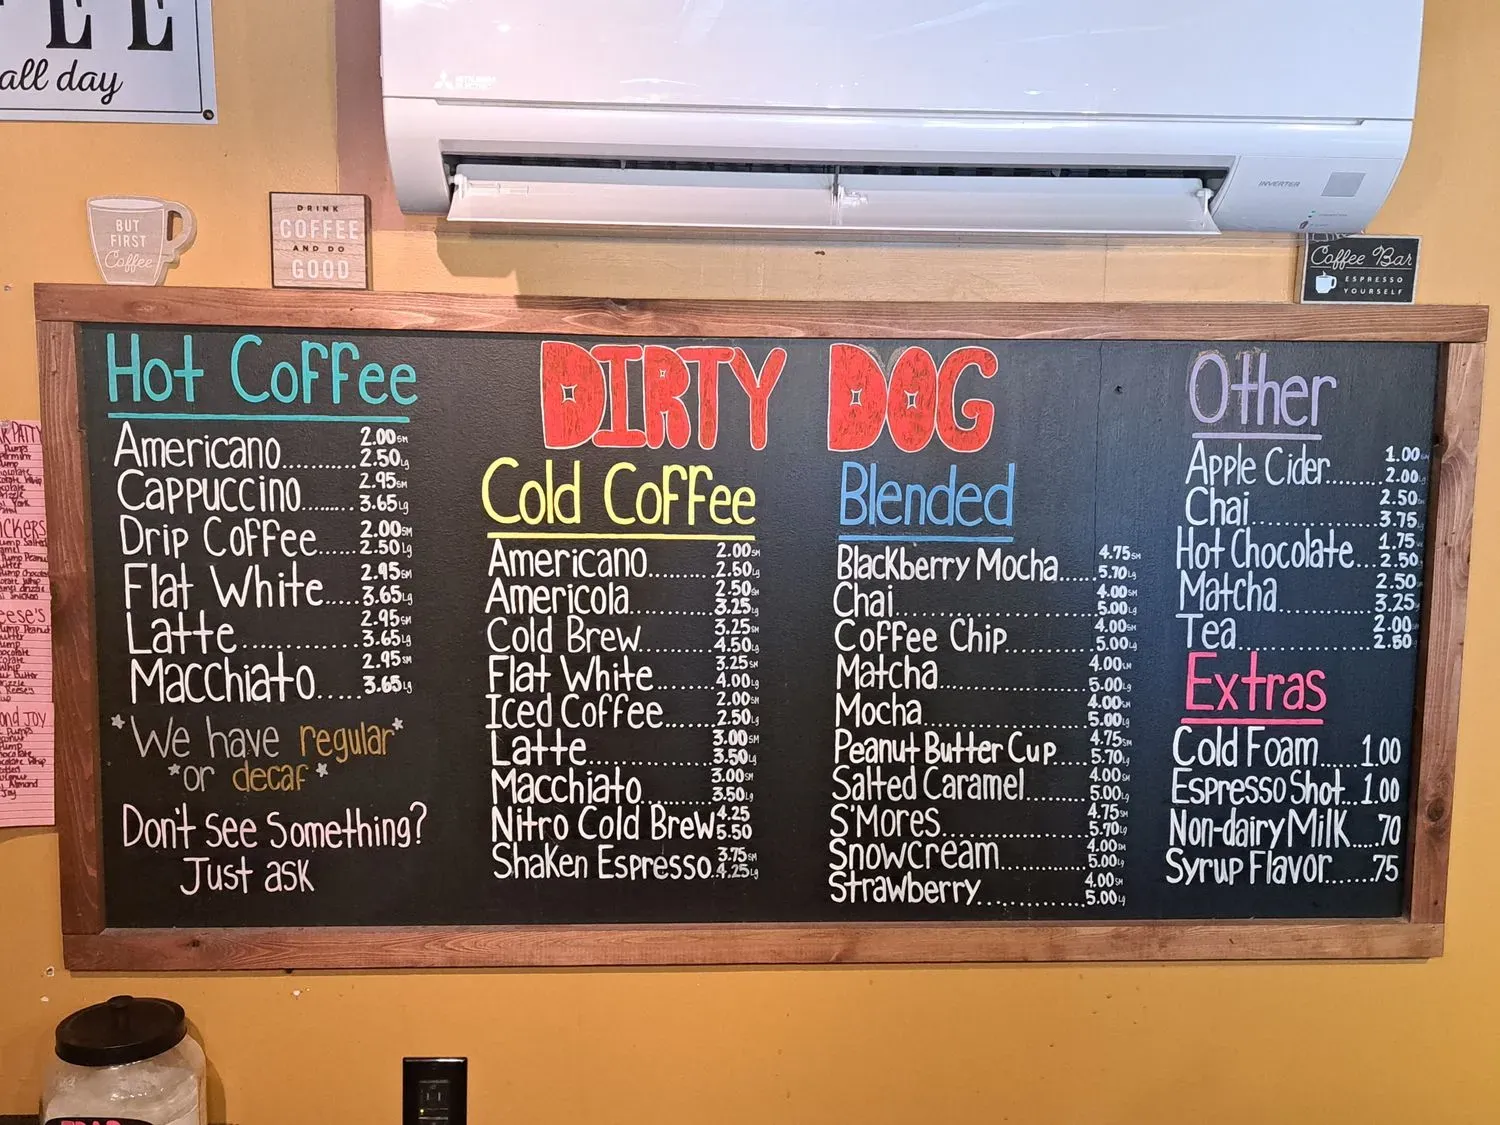 EE
all day
MITSUBISHI
ELECTRIC
INVERTER
BUT
FIRST
Coffee
DRINK
COFFEE
AND DO
GOOD
Coffee Bar
ESPRESSO
YOURSELF
Hot Coffee
Americano.......... 2.00 SM
2.50 Lg
Cappuccino........ 2.95 SM
3.65 Lg
Drip Coffee..... 2.00 SM
2.50 Lg
Flat White..... 2.95 SM
3.65 Lg
Latte............ 2.95 SM
3.65 Lg
Macchiato..... 2.95 SM
3.65 Lg
*We have regular*
*or decaf*
Don't see something?
Just ask
DIRTY DOG
Cold Coffee
Americano........ 2.00 SM
2.50 Lg
Americola.......... 2.50 SM
3.25 Lg
Cold Brew......... 3.25 SM
4.50 Lg
Flat White....... 3.25 SM
4.00 Lg
Iced Coffee...... 2.00 SM
2.50 Lg
Latte............... 3.00 SM
3.50 Lg
Macchiato......... 3.00 SM
3.50 Lg
Nitro Cold Brew 4.25
5.50
Shaken Espresso. 3.75 SM
4.25 Lg
Blended
Blackberry Mocha..... 4.75 SM
5.70 Lg
Chai......................... 4.00 SM
5.00 Lg
Coffee Chip........... 4.00 SM
5.00 Lg
Matcha................... 4.00 SM
5.00 Lg
Mocha..................... 4.00 SM
5.00 Lg
Peanut Butter Cup.... 4.75 SM
5.70 Lg
Salted Caramel........ 4.00 SM
5.00 Lg
S'Mores................... 4.75 SM
5.70 Lg
Snowcream............ 4.00 SM
5.00 Lg
Strawberry.............. 4.00 SM
5.00 Lg
Other
Apple Cider........ 1.00 SM
2.00 Lg
Chai................. 2.50
3.75
Hot Chocolate... 1.75
2.50
Matcha.............. 2.50
3.25
Tea................... 2.00
2.50
Extras
Cold Foam....1.00
Espresso Shot...1.00
Non-dairy Milk.....70
Syrup Flavor.......75